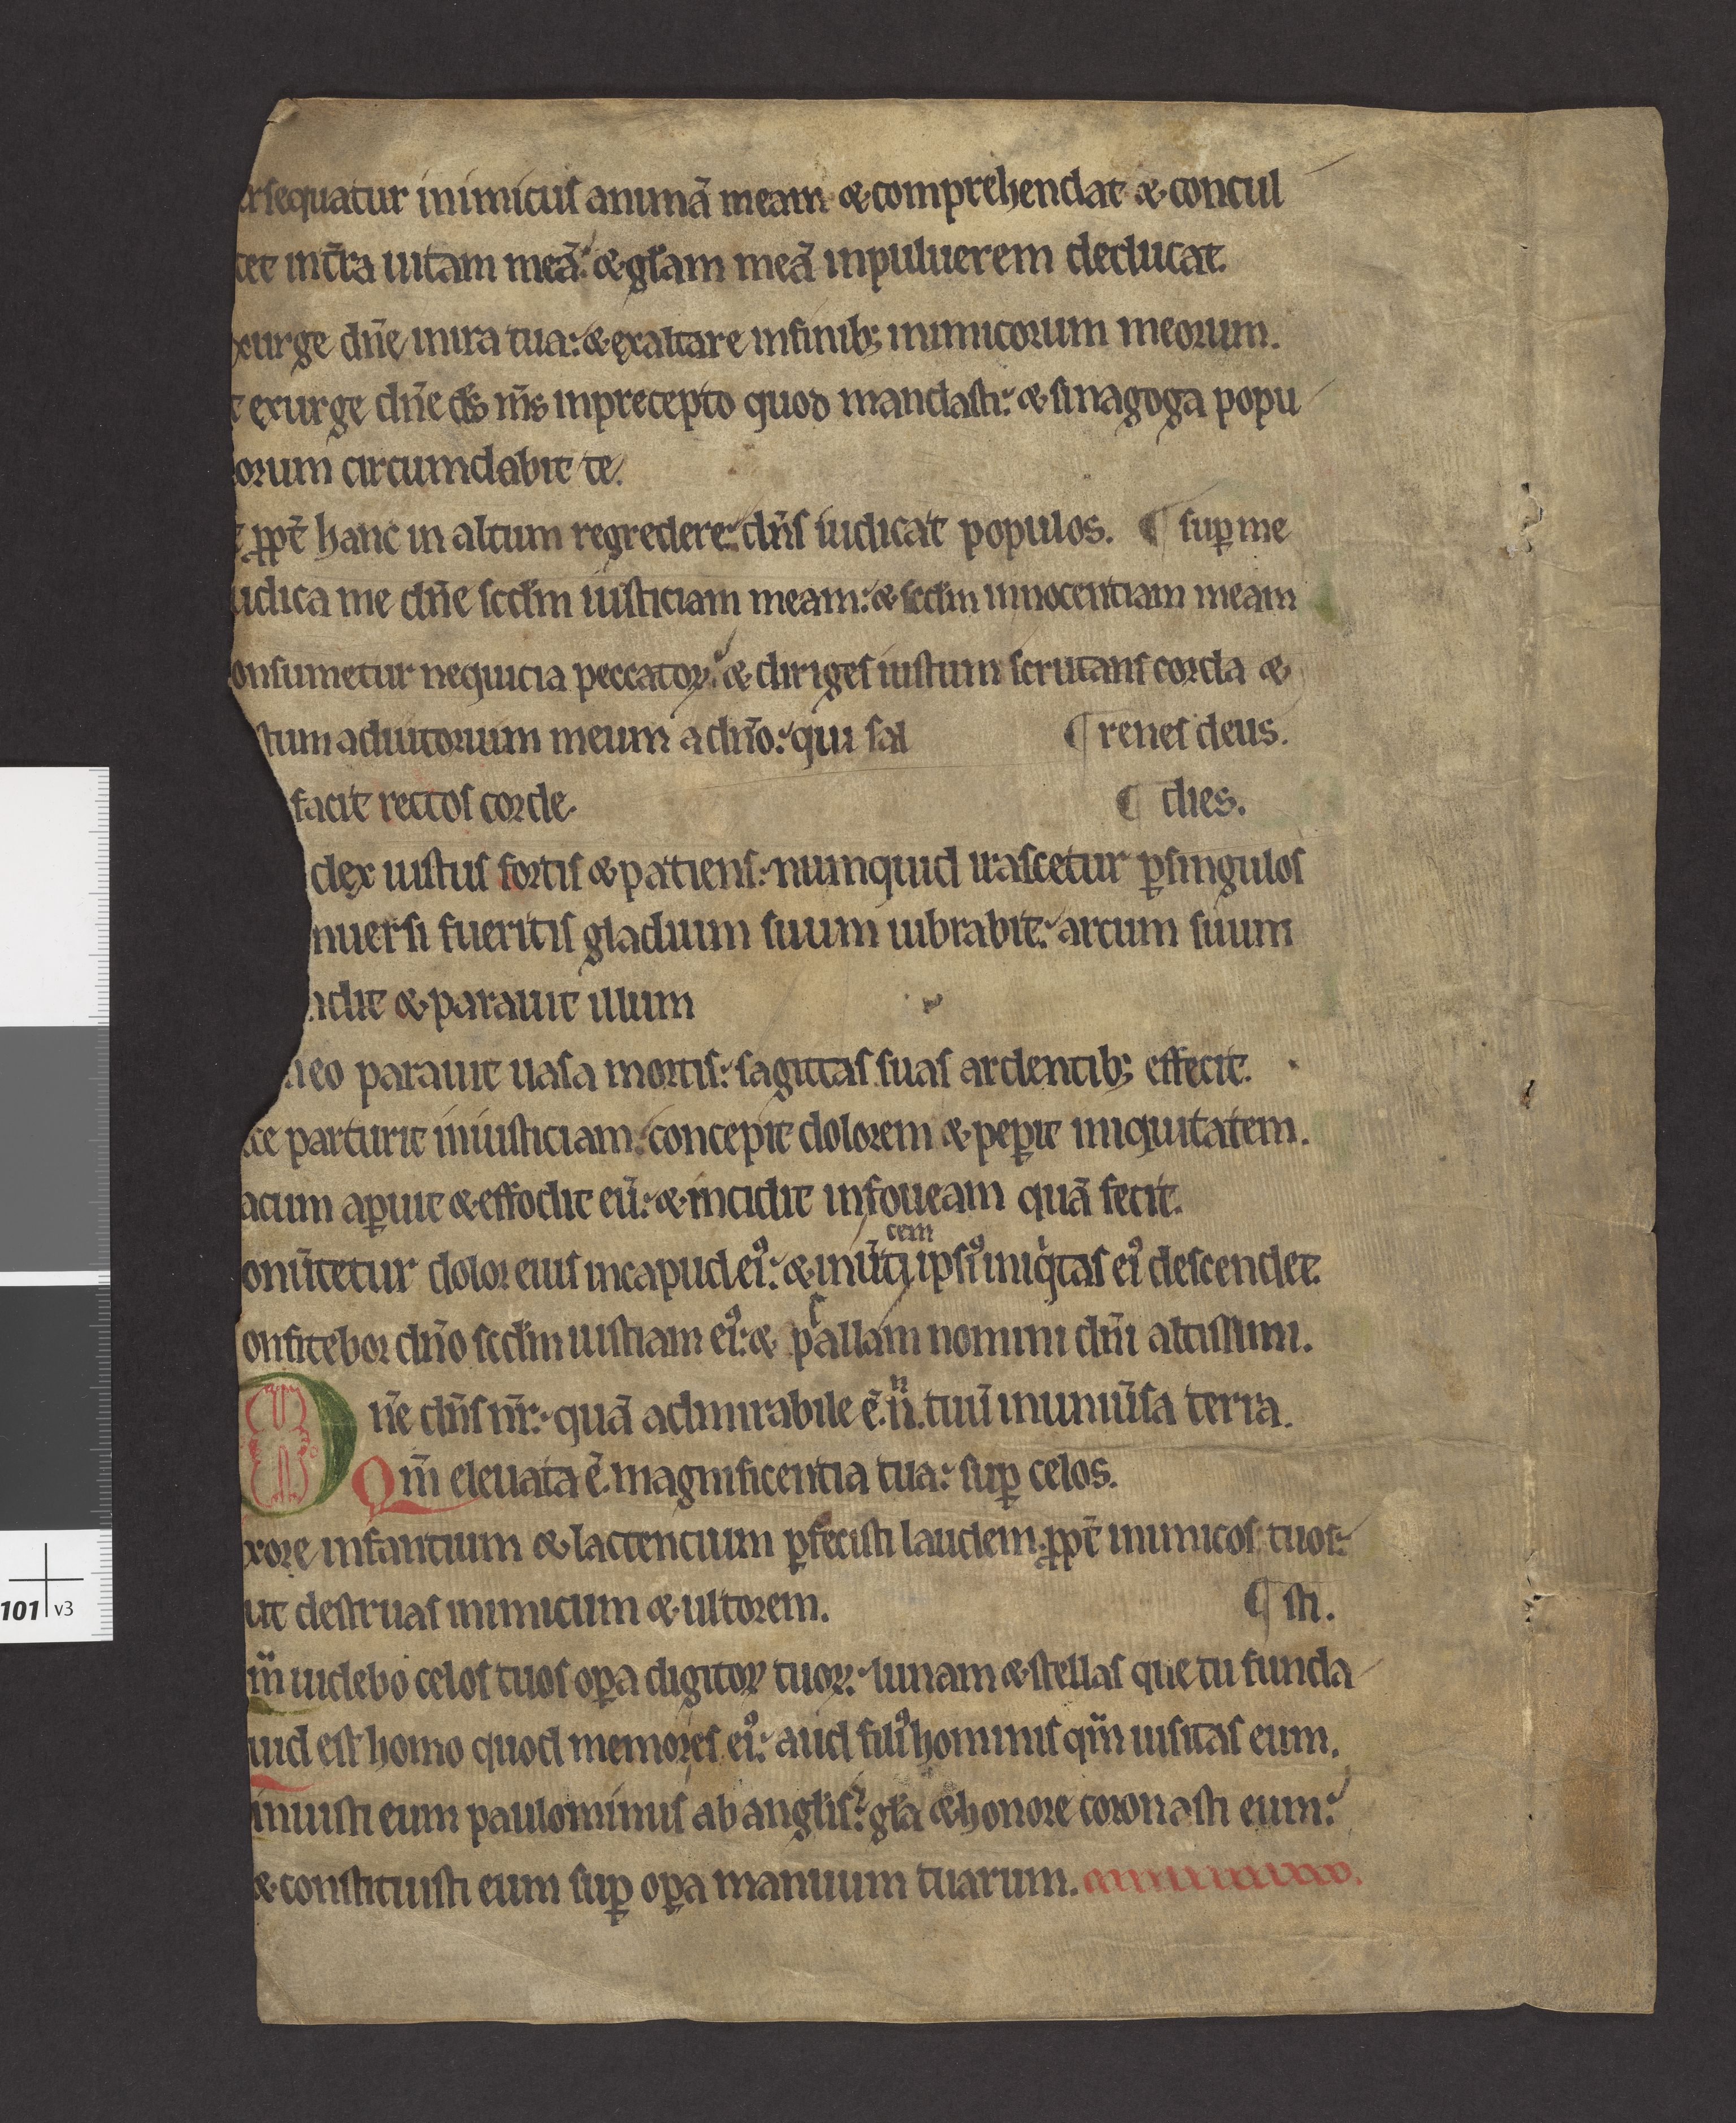 rsequatur inimicus animā meam & comprehendat & concul
cet int̄ra uitam meā: & gl̄am meā inpuluerem deducat.
xurge dn̄e inira tua: & exaltare infinib; inimicorum meorum.
t exurge dn̄e ds̄ m̄s inprecepto quod mandasti: & sinagoga popu
lorum circumdabit te.
t ꝓpt̄ hanc in altum regredere: dn̄s iudicat populos. ¶ suꝑ me
udica me dn̄e scd̄m iusticiam meam: & scd̄m innocentiam meam
onsumetur nequicia peccatoꝝ: & diriges iustum scrutans corda &
stum adiutorium meum a dn̄o: qui sal ¶ renes deus.
facit rectos corde. ¶ dies.
dex iustus fortis & patiens: numquid irascetur ꝑsingulos
nuersi fueritis gladium suum uibrabit: arcum suum
ndit & parauit illum
n eo parauit uasa mortis: sagittas suas ardentib; effecit.
cce parturit iniusticiam: concepit dolorem & peꝑit iniquitatem.
acum aꝑuit & effodit eū: & incidit infoueam quā fecit.
onūtetur dolor eius incapud eiꝰ: & inūti cem ipsiꝰ iniqitas eiꝰ descendet.
onfitebor dn̄o scd̄m iustiam eiꝰ: & psallam nomini dn̄i altissimi.
Dn̄e dn̄s nr̄: quā admirabile ē. n̄. tuū inuniūsa terra.
Qm̄ eleuata ē. magnificentia tua: suꝑ celos.
xore infantium & lactencium ꝑfecisti laudem ꝓpt̄ inimicos tuos:
ut destruas inimicum & ultorem. ¶ sti.
m̄ uidebo celos tuos oꝑa digitoꝝ tuoꝝ: lunam & stellas que tu funda
uid est homo quod memores eiꝰ: aud filiꝰ hominis qm̄ uisitas eum.
inuisti eum paulominus ab angl̄is: gl̄a & honore coronasti eum:
& constituisti eum suꝑ oꝑa manuum tuarum.